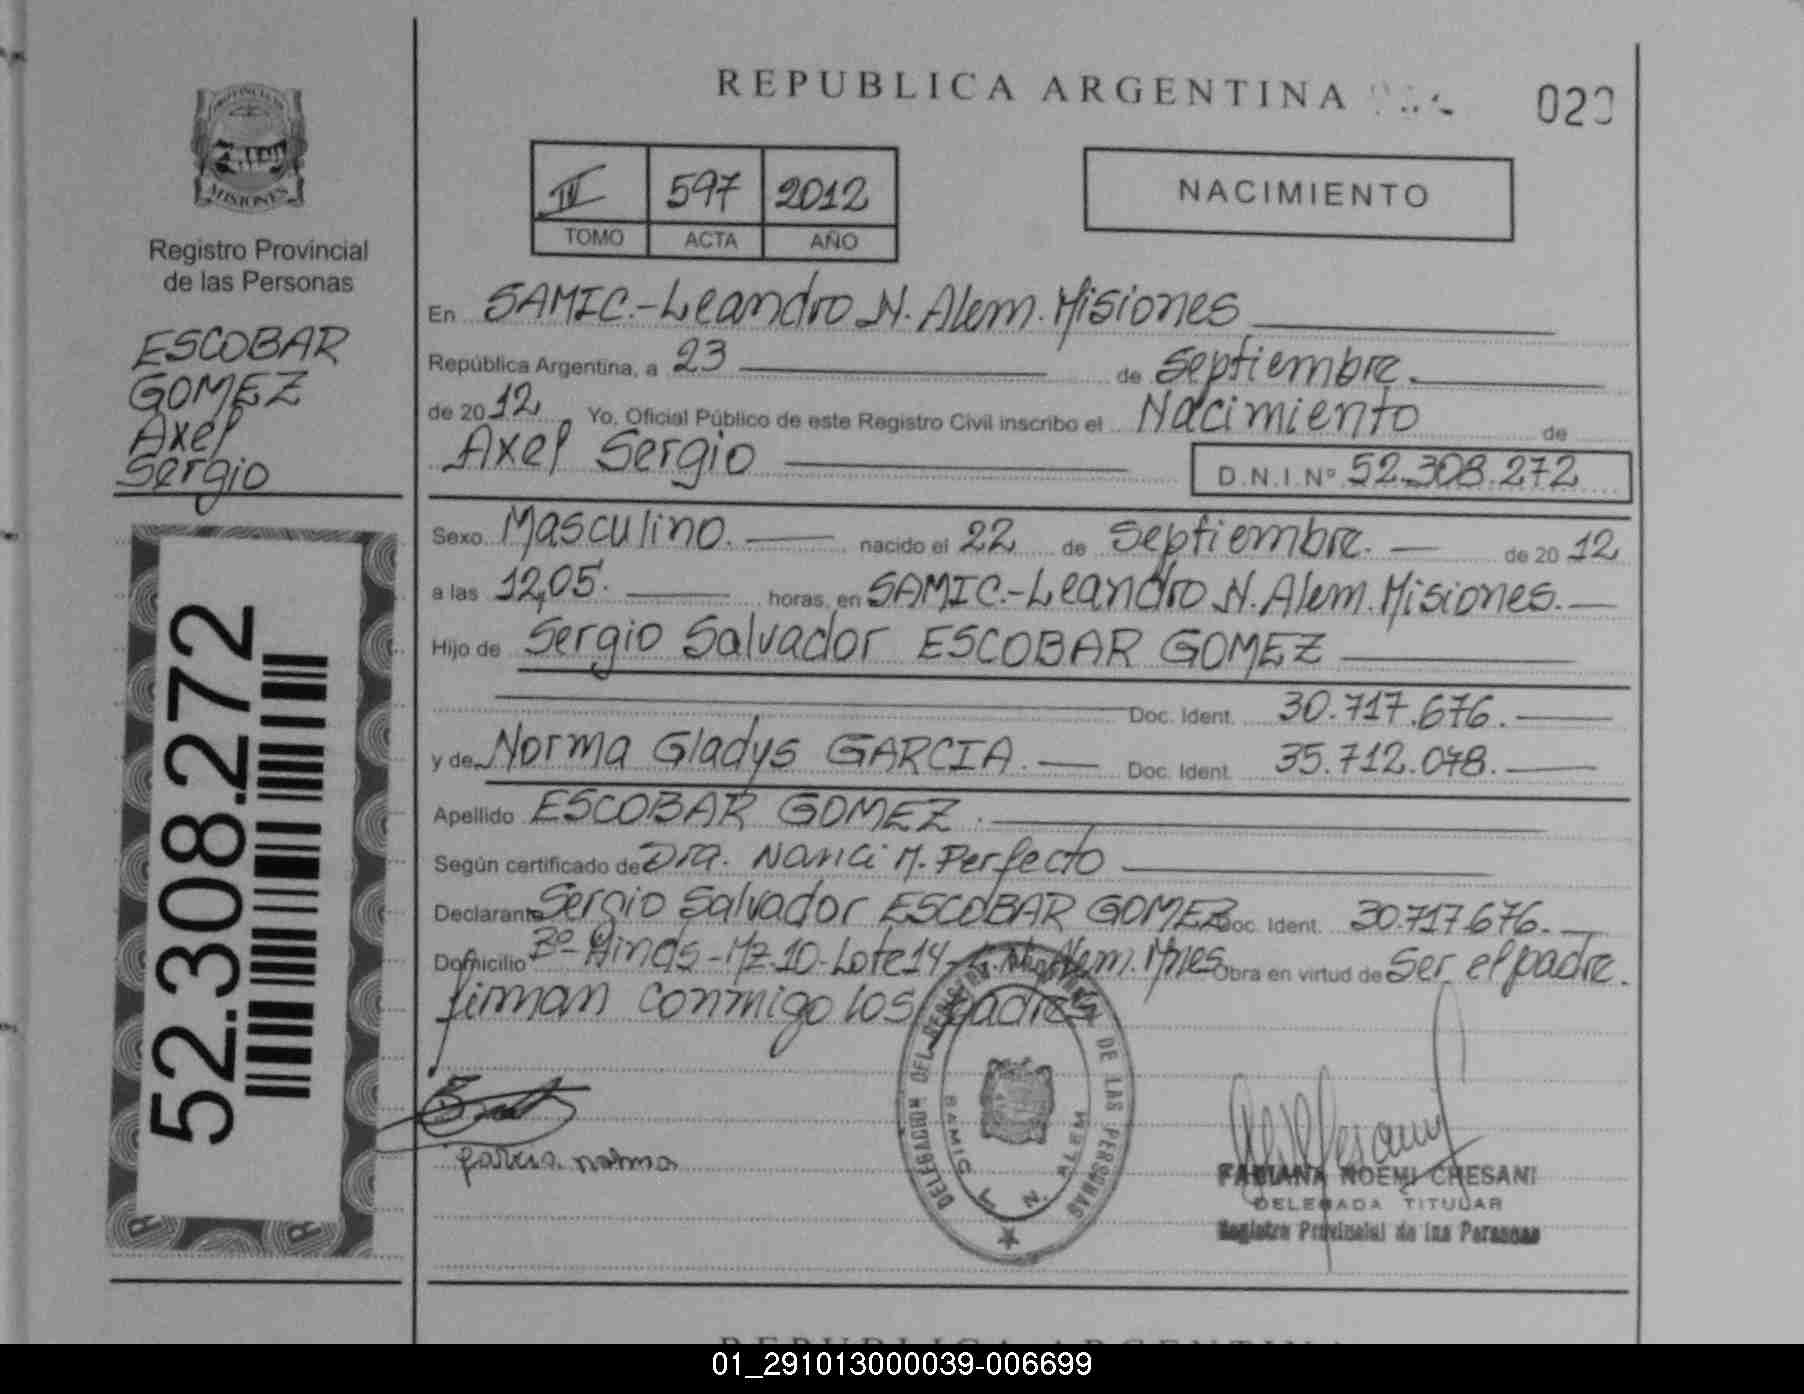 REPUBLICA ARGENTINA
PROVINCIA DE
MISIONES
Registro Provincial
de las Personas
ESCOBAR
GOMEZ
Axel
Sergio
52.308.272
IV 597 2012
TOMO ACTA AÑO
NACIMIENTO
En SAMIC.-Leandro N. Alem. Misiones
República Argentina, a 23 de Septiembre.
de 2012 Yo, Oficial Público de este Registro Civil inscribo el Nacimiento de
Axel Sergio D.N.I.Nº 52.308.272
Sexo Masculino. nacido el 22 de Septiembre. de 2012
a las 12,05. horas, en SAMIC.-Leandro N. Alem. Misiones.
Hijo de Sergio Salvador ESCOBAR GOMEZ
Doc. Ident. 30.717.676.
y de Norma Gladys GARCIA. Doc. Ident. 35.712.078.
Apellido ESCOBAR GOMEZ.
Según certificado de Dra. Nanci M. Perfecto
Declarante Sergio Salvador ESCOBAR GOMEZ Doc. Ident. 30.717.676.
Domicilio Bº- -Mz.10-Lote14-L.N.Alem.Mnes Obra en virtud de Ser el padre.
firman conmigo los padres
garcia norma
DELEGACION DEL REGISTRO PROVINCIAL DE LAS PERSONAS
SAMIC L. N. ALEM
FABIANA NOEMI CHESANI
DELEGADA TITULAR
Registro Provincial de las Personas
REPUBLICA ARGENTINA
01_291013000039-006699